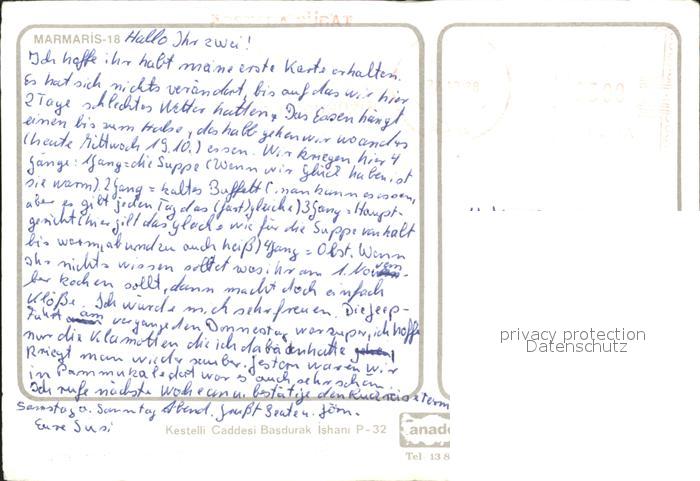 MARMARİS-18 Hallo Ihr zwei!
Ich hoffe ihr habt meine erste Karte erhalten.
Es hat sich nichts verändert, bis auf das wir hier
2 Tage schlechtes Wetter hatten. Das Essen hängt
einen bis zum Halse, deshalb gehen wir woanders
(heute Mittwoch 19.10.) essen. Wir kriegen hier 4
Gänge: 1 Gang = die Suppe (Wenn wir Glück haben, ist
sie warm). 2 Gang = kaltes Buffett (man kann es essen,
aber es gibt jeden Tag das (fast) gleiche) 3 Gang = Haupt-
gericht (hier gilt das Gleiche wie für die Suppe von kalt
bis warm, ab und zu auch heiß) 4 Gang = Obst. Wenn
ihr nichts wissen solltet was ihr am 1. Novem
ber kochen sollt, dann macht doch einfach
Klöße. Ich würde mich sehr freuen. Die Jeep-
Fahrt am vergangenen Donnerstag war super, ich hoffe
nur die Klamotten die ich dabei anhatte
kriegt man wieder sauber. Gestern waren wir
in Pammukale dort war es auch sehr schön.
Ich rufe nächste Woche an u. bestätige den Rückreisetermin
Samstag o. Sonntag Abend. Grüßt
Eure Susi
Kestelli Caddesi Basdurak İşhanı P-32
anado
Tel 13 8
privacy protection
Datenschutz